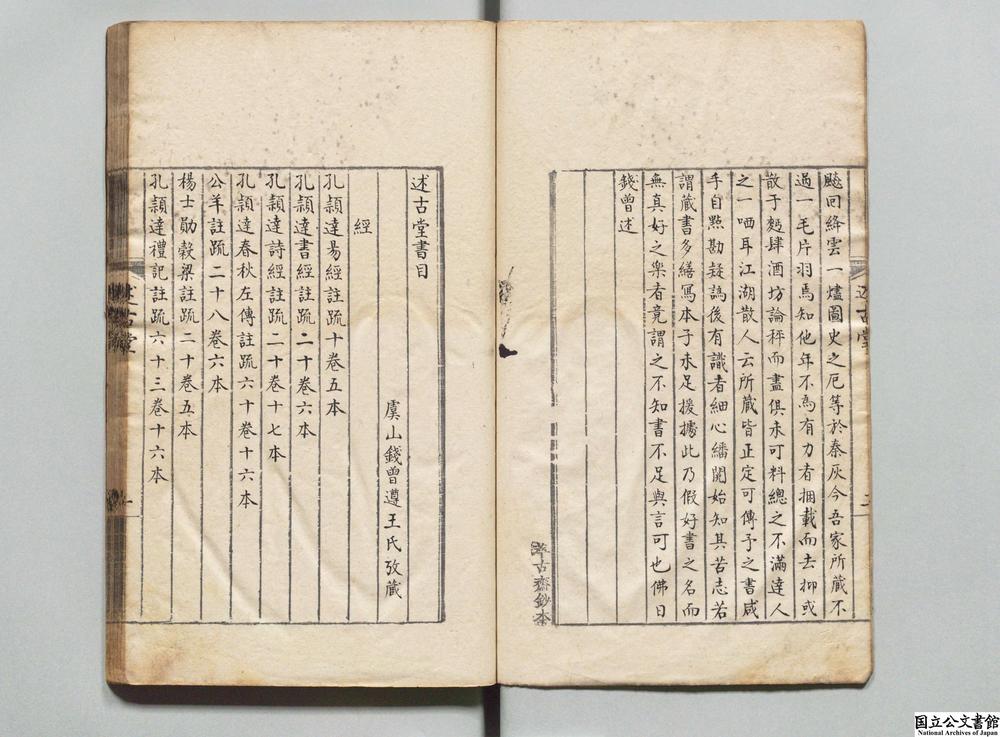 飇回絳雲一爐圖史之厄等於秦灰今吾家所藏不
過一毛片羽焉知他年不爲有力者捆載而去抑或
散于麪肆酒坊論秤而盡俱未可料總之不滿達人
之一哂耳江湖散人云所藏皆正定可傳予之書咸
手自點勘疑譌後有識者細心繙閱始知其苦志若
謂藏書多繕寫本子未足援據此乃假好書之名而
無真好之樂者竟謂之不知書不足與言可也佛日
錢曾述
古齋鈔本
述古堂
述古堂書目
虞山錢曾遵王氏攷藏
經
孔穎達易經註疏十卷五本
孔穎達書經註疏二十卷六本
孔穎達詩經註疏二十卷十七本
孔穎達春秋左傳註疏六十卷十六本
公羊註疏二十八卷六本
楊士勛穀梁註疏二十卷五本
孔穎達禮記註疏六十三卷十六本
述古堂
一
国立公文書館
National Archives of Japan